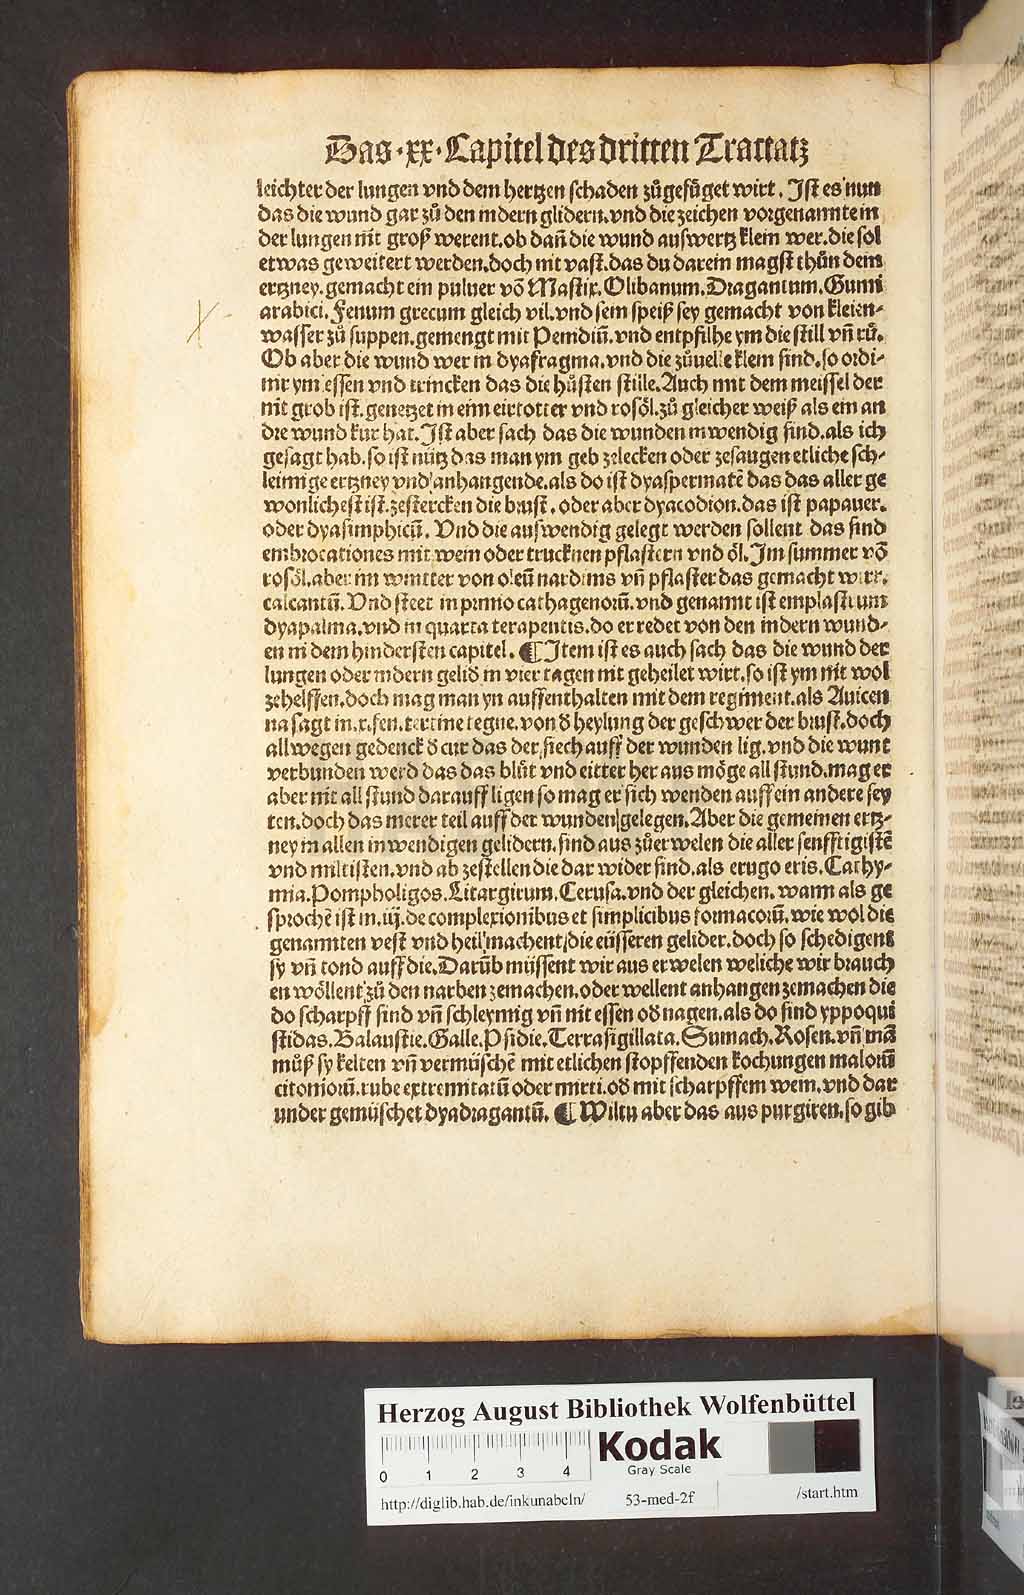 Das ·xx· Capitel des dritten Tractatz
leichter der lungen vnd dem hertzen schaden zů gefůget wirt. Jst es nun
das die wund gar zů den indern glidern.vnd die zeichen vorgenannte in
der lungen nit groß werent.ob dañ die wund auswertz klein wer.die sol
etwas geweitert werden.doch nit vast.das du darein magst thůn dem
ertzney.gemacht ein puluer võ Mastix.Olibanum.Dragantum.Gumi
arabici.Fenum grecum gleich vil.vnd sein speiß sey gemacht von kleien-
wasser zů suppen.gemengt mit Pemdiũ.vnd entpfilhe ym die still vñ rů.
Ob aber die wund wer in dyafragma.vnd die zůuelle klein sind.so ordi-
nir ym essen vnd trincken das die hůsten stille.Auch mit dem meissel der
nit grob ist.genetzet in eim eirtotter vnd rosöl.zů gleicher weiß als ein an
dre wund kur hat.Jst aber sach das die wunden inwendig sind.als ich
gesagt hab.so ist nütz das man ym geb zelecken oder zesaugen etliche sch-
leimige ertzney vnd anhangende.als do ist dyaspermatẽ das das aller ge
wonlichest ist.zestercken die brust.oder aber dyacodion.das ist papauer.
oder dyasimphicũ. Vnd die auswendig gelegt werden sollent das sind
embrocationes mit wein oder trucknen pflastern vnd öl.Jm summer võ
rosöl.aber im wintter von oleũ nardinis vñ pflaster das gemacht wirt.
calcantũ.Vnd steet in primo cathagenorũ.vnd genannt ist emplastrum
dyapalma.vnd in quarta terapentis.do er redet von den indern wund-
en in dem hindersten capitel. ¶Jtem ist es auch sach das die wund der
lungen oder indern gelid̃ in vier tagen nit geheilet wirt.so ist ym nit wol
zehelffen.doch mag man yn auffenthalten mit dem regiment.als Auicen
na sagt in.x.fen.tertine tegne.von d̃ heylung der geschwer der brust.doch
allwegen gedenck d̃ cur das der siech auff der wunden lig.vnd die wunt
verbunden werd das das blůt vnd eitter her aus möge all stund.mag er
aber nit all stund darauff ligen so mag er sich wenden auff ein andere sey
ten.doch das merer teil auff der wunden gelegen.Aber die gemeinen ertz-
ney in allen inwendigen gelidern.sind aus zůerwelen die aller senfftigistẽ
vnd miltisten.vnd ab zestellen die dar wider sind.als erugo eris.Cathy-
mia.Pompholigos.Litargirum.Cerusa.vnd der gleichen.wann als ge
sprochẽ ist in.iij.de complexionibus et simplicibus formacorũ.wie wol die
genannten vest vnd heil machent die eüsseren gelider.doch so schedigent
sy vñ tond auff die.Darũb müssent wir aus erwelen weliche wir brauch
en wöllent zů den narben zemachen.oder wellent anhangen zemachen die
do scharpff sind vñ schleymig vñ nit essen od̃ nagen.als do sind yppoqui
stidas.Balaustie.Galle.Psidie.Terra sigillata.Sumach.Rosen.vñ mã
můß sy kelten vñ vermüschẽ mit etlichen stopffenden kochungen malorũ
citoniorũ.rube extremitatũ oder mirti.od̃ mit scharpffem wein.vnd dar
under gemüschet dyadragantũ. ¶Wiltu aber das aus purgiren.so gib
Herzog August Bibliothek Wolfenbüttel
0 1 2 3 4
Kodak
Gray Scale
http://diglib.hab.de/inkunabeln/ 53-med-2f /start.htm